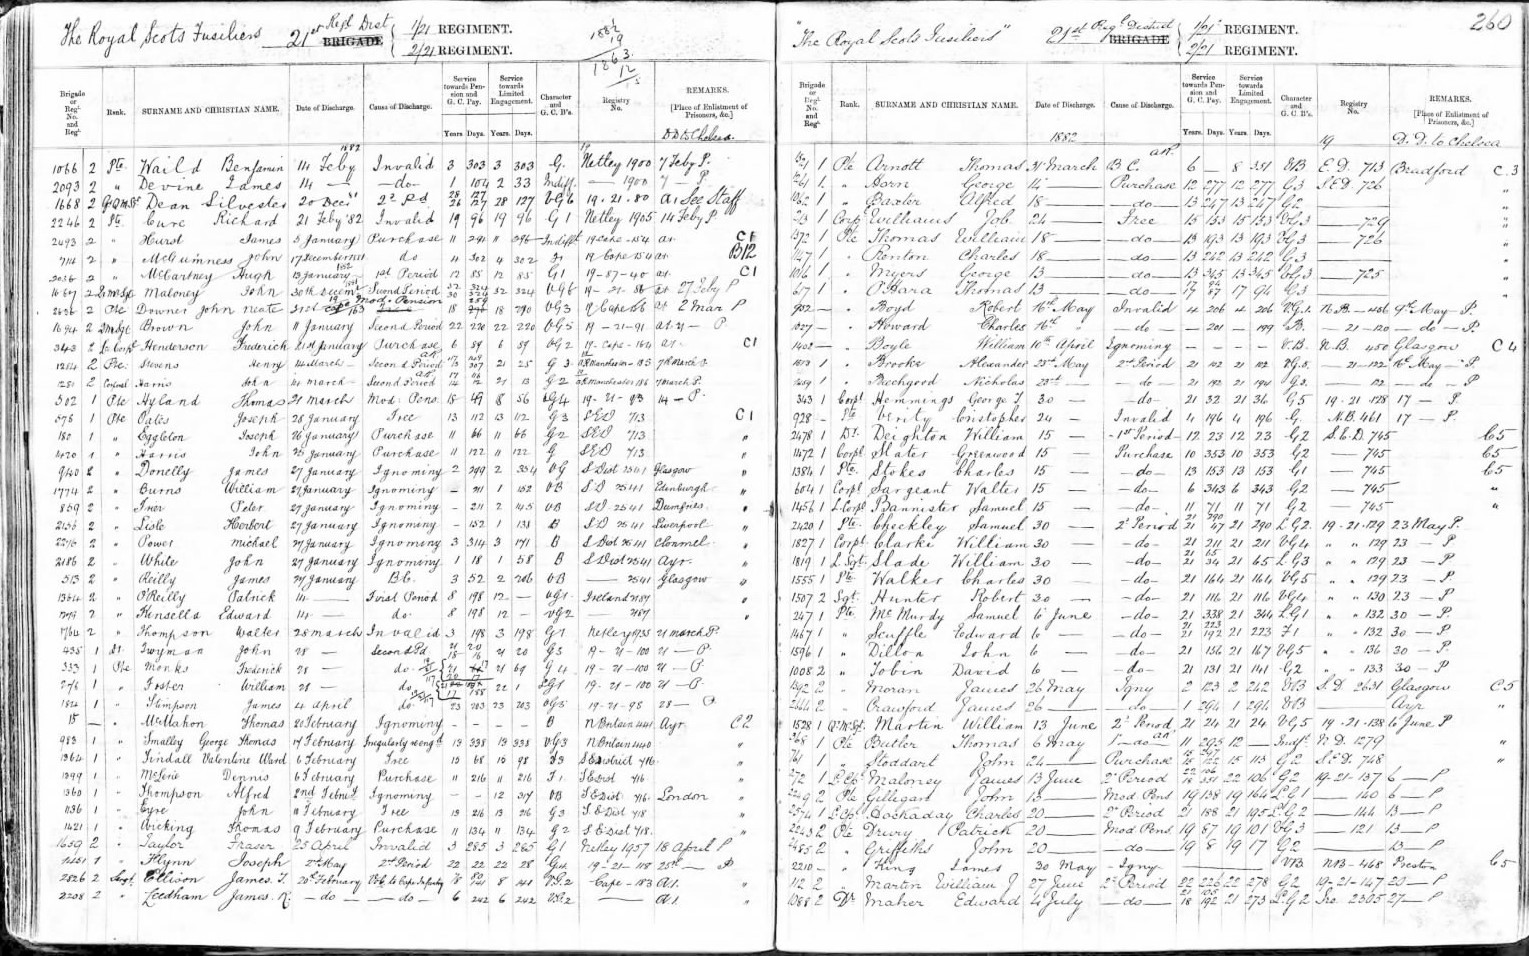 The Royal Scots Fusiliers 21st Regl Dist BRIGADE 1/21 REGIMENT.
2/21 REGIMENT.
1882
19
1863
12
Brigade or Regl No. and Regt
Rank.
SURNAME AND CHRISTIAN NAME.
Date of Discharge.
Cause of Discharge.
Service towards Pension and G. C. Pay.
Service towards Limited Engagement.
Character and G. C. B's.
Registry No.
REMARKS.
[Place of Enlistment of Prisoners, &c.]
Years. Days. Years. Days.
D.D. to Chelsea
1882
1066 2 Pte. Waild Benjamin 14 Feby Invalid 3 303 3 303 G. Netley 1900 7 Feby P.
2093 2 " Devine James 14 — —do— 1 104 2 33 Indiff. — 1900 7 — P.
1668 2 Dean Silvester 20 Decr 2d Pd 28 127 VG6 19.21.80 at See Staff
2246 2 Pte. Cure Richard 21 Feby '82 Invalid 19 96 19 96 G1 Netley 1905 14 Feby P
2493 2 " Hurst James 5 January Purchase 11 291 11 296 Indifft 19 Cape 154 at C1
2 " McGuinness John 17 December do 4 302 4 302 19 Cape 154 at B12
2036 2 " McCartney Hugh 13 January 1st Period 12 85 12 85 G1 19-87-40 at C1
2 Maloney John 30th Decemr Second Period 32 324 VG6 19-21-86 at 27 Feby P
2 Pte Downer John Neate 31st Mod. Pension 18 18 290 VG3 19 Cape at 2 Mar P
1694 2 Brown John 11 January Second Period 22 220 22 220 VG5 19-21-91 at 21 — P
343 2 Henderson Frederick 21st January Purchase 6 59 6 59 VG2 19 Cape-164 at C1
1214 2 Pte Stevens Henry 14 March Second Period 21 25 G 3 Manchester 183 7 March P.
1281 2 Corporal Harris John 14 March Second Period 21 13 G2 Manchester 7 March P.
502 1 Pte Hyland Thomas 21 March Mod: Pens. 18 49 8 56 VG4 19-21-93 14 — P.
578 1 Pte Oates Joseph 28 January Free 13 112 13 112 G3 SED 713 C1
180 1 " Eggleton Joseph 26 January Purchase 11 66 11 66 G2 SED 713 "
1420 1 " Harris John 25 January Purchase 11 122 11 122 G SED 713 "
2 " Donelly James 27 January Ignominy 2 299 2 334 VG S Dist 2541 Glasgow "
1774 2 " Burns William 27 January Ignominy — 211 1 152 VB SD 2541 Edinburgh "
859 2 " Iver Peter 27 January Ignominy — 211 2 145 VB SD 2541 Dumfries "
2156 2 " Lisle Herbert 27 January Ignominy — 152 1 131 B SD 2541 Liverpool "
2276 2 " Power Michael 27 January Ignominy 3 314 3 171 B S Dist 2541 Clonmel "
2186 2 " White John 27 January Ignominy 1 18 1 58 B S Dist 2541 Ayr "
513 2 " Reilly James 27 January B.C. 3 52 2 206 VB — 2541 Glasgow "
1364 2 " O'Reilly Patrick 14 — First Period 8 198 12 — VG1 Ireland 787 "
2 " Kinsella Edward 14 — do 8 198 12 — VG2 787 "
1764 2 " Thompson Walter 28 March Invalid 3 198 3 198 G1 Netley 1935 21 March P.
435 1 Dr Twyman John 28 — Second Pd 21 20 G3 19-21-100 21 — P.
333 1 Pte Monks Frederick 28 — do 21 69 G4 19-21-100 21 — P.
276 1 " Foster William 28 — do 22 1 G1 19-21-100 21 — P.
1824 1 " Stimpson James 4 April do 23 203 23 203 VG5 19-21-98 28 — P
15 — " McMahon Thomas 20 February Ignominy — — — — B N Britain 441 Ayr. C2
983 1 " Smalley George Thomas 14 February Irregularly re-engd 19 338 19 338 VG3 N Britain 440 "
1364 1 " Tindall Valentine Ward 6 February Free 15 68 15 98 G3 S E District 716 "
1399 1 " Dennis 6 February Purchase 11 216 11 216 G1 S E Dist 716 "
1360 1 " Thompson Alfred 2nd Febry Ignominy — — 12 317 VB S E Dist 716. London "
1136 1 " Eyre John 11 February Free 13 216 13 216 G3 S. E Dist 718 "
1421 1 " Wicking Thomas 9 February Purchase 11 134 11 134 G2 S E Dist 718. "
1659 2 " Taylor Fraser 25 April Invalid 3 285 3 285 G1 Netley 1957 18 April P
1 " Flynn Joseph 2nd May 2d Period 22 22 22 28 G4 19-21-118 25th — P
2826 2 Sergt Ellison James. T. 20th February Vol. to Cape Infantry 8 141 VG.2 Cape-183 at. "
2208 2 " Leedham James. R. — do — — do — 6 242 6 242 VG.2 — at. "
"The Royal Scots Fusiliers" 21st Regl District BRIGADE 1/21 REGIMENT.
2/21 REGIMENT.
260
Brigade or Regl No. and Regt
Rank.
SURNAME AND CHRISTIAN NAME.
Date of Discharge.
Cause of Discharge.
Service towards Pension and G. C. Pay.
Service towards Limited Engagement.
Character and G. C. B's.
Registry No.
REMARKS.
[Place of Enlistment of Prisoners, &c.]
Years. Days. Years. Days.
1882 19 D.D. to Chelsea
1 Pte Arnott Thomas 31 March B C. 6 — 8 331 VB E.D. 713 Bradford C.3
1261 1. " Horn George 14 Purchase 12 277 12 277 G3 S.E.D. 726 "
1062 1. " Baxter Alfred 18 — —do— 13 247 13 247 G2 — "
1 Corpl Williams Job 24 — Free 15 153 15 153 VG3 — 729 "
1372 1 Pte Thomas William 18 — —do— 13 193 13 193 VG3 — 726 "
1147 1 " Fenton Charles 18 — —do— 13 242 13 242 G3 — "
1016 1 " Myers George 13 — —do— 13 345 13 345 VG3 — 725 "
617 1 " O'Hara Thomas 13 — —do— 17 94 G3 — "
932 — " Boyd Robert 16th May Invalid 4 206 4 206 VG1. N.B.-456 9th May — P.
1327 — " Howard Charles 16th " — do — — 201 — 199 B. — 21-120 — do — P.
1402 — " Boyle William 10th April Ignominy — — — V.B. N.B. 450 Glasgow C4
1 " Brooks Alexander 23rd May 2d Period 21 112 21 112 VG5. — 21-122 16th May — P.
1 " Peechgood Nicholas 23rd — — do — 21 192 21 194 G3. — 122 — do — P
343 1 Corpl Hemmings George T. 30 — —do— 21 32 21 36 G5 19-21-128 17 — P.
928 — Pte Verity Cristopher 24 — Invalid 4 196 4 196 G. N.B. 461 17 — P.
2478 1 Dr. Deighton William 15 — —1st Period— 12 23 12 23 G2 S.E.D. 745 C5
1472 1 Corpl Slater Greenwood 15 — Purchase 10 353 10 353 G2 — 745 C5
1384 1 Pte Stokes Charles 15 — —do— 13 153 13 153 G1 — 745 C5
604 1 Corpl Sargeant Walter 15 — —do— 6 343 6 343 G2 — 745 "
1456 1 L.Corpl Bannister Samuel 15 — —do— 11 71 11 71 G2 — 745 "
2420 1 Pte Checkley Samuel 30 — 2d Period 21 47 21 290 G2 19-21-129 23 May P.
1827 1 Corpl Clarke William 30 — —do— 21 211 21 211 VG4 " " 129 23 — P
1819 1 L. Sgt. Slade William 30 — —do— 21 34 21 65 G3 " " 129 23 — P
1555 1 Pte Walker Charles 30 — —do— 21 164 21 164 VG5 " " 129 23 — P
1507 2 Sgt. Hunter Robert 30 — —do— 21 116 21 116 VG4 " " 130 23 — P
247 1 Pte. McMurdy Samuel 6 June —do— 21 338 21 344 G1 " " 132 30 — P
1467 1 " Scuffle Edward 6 — —do— 21 192 21 223 F1 " " 132 30 — P
1596 1 " Dillon John 6 — —do— 21 156 21 167 VG5 " " 136 30 — P
1008 2 " Tobin David 6 — —do— 21 131 21 141 G2 " " 133 30 — P
1392 2 " Moran James 26 May Igny 2 123 2 242 VB S.D. 2631 Glasgow C5
2444 2 " Crawford James 26 — —do— 1 294 1 294 VB — Ayr "
1528 1 Qr.Mr.Sgt. Martin William 13 June 2d Period 21 24 21 24 VG5 19-21-138 6 June P
1 Pte Butler Thomas 6 May 1 — do — 11 295 12 — Indft. N.D. 1279 "
761 1 " Stoddart John 24 — Purchase 15 113 G2 S.E.D. 748 "
272 1 Maloney James 13 June 2d Period 18 351 22 106 G2 19-21-137 6 — P
2 Pte Gilligan John 13 — Mod Pens 19 138 19 164 G1 — 140 6 — P
2374 1 Doohaday Charles 20 — 2d Period 21 188 21 195 G2 — 144 13 — P
2243 2 Pte Drury Patrick 20 — Mod Pens. 19 87 19 101 VG3 — 121 13 — P
2485 2 " Griffiths John 20 — —do— 19 8 19 17 G2 — 13 — P
2210 — " King James 30 May — Igny — VB N.B-468 Preston C5
112 2 " Martin William J 27 June 2d Period 22 226 22 278 G2 19-21-147 20 — P
1088 2 Dr Maher Edward 4 July — do — 18 192 21 273 G2 Iro. 2305 27 — P